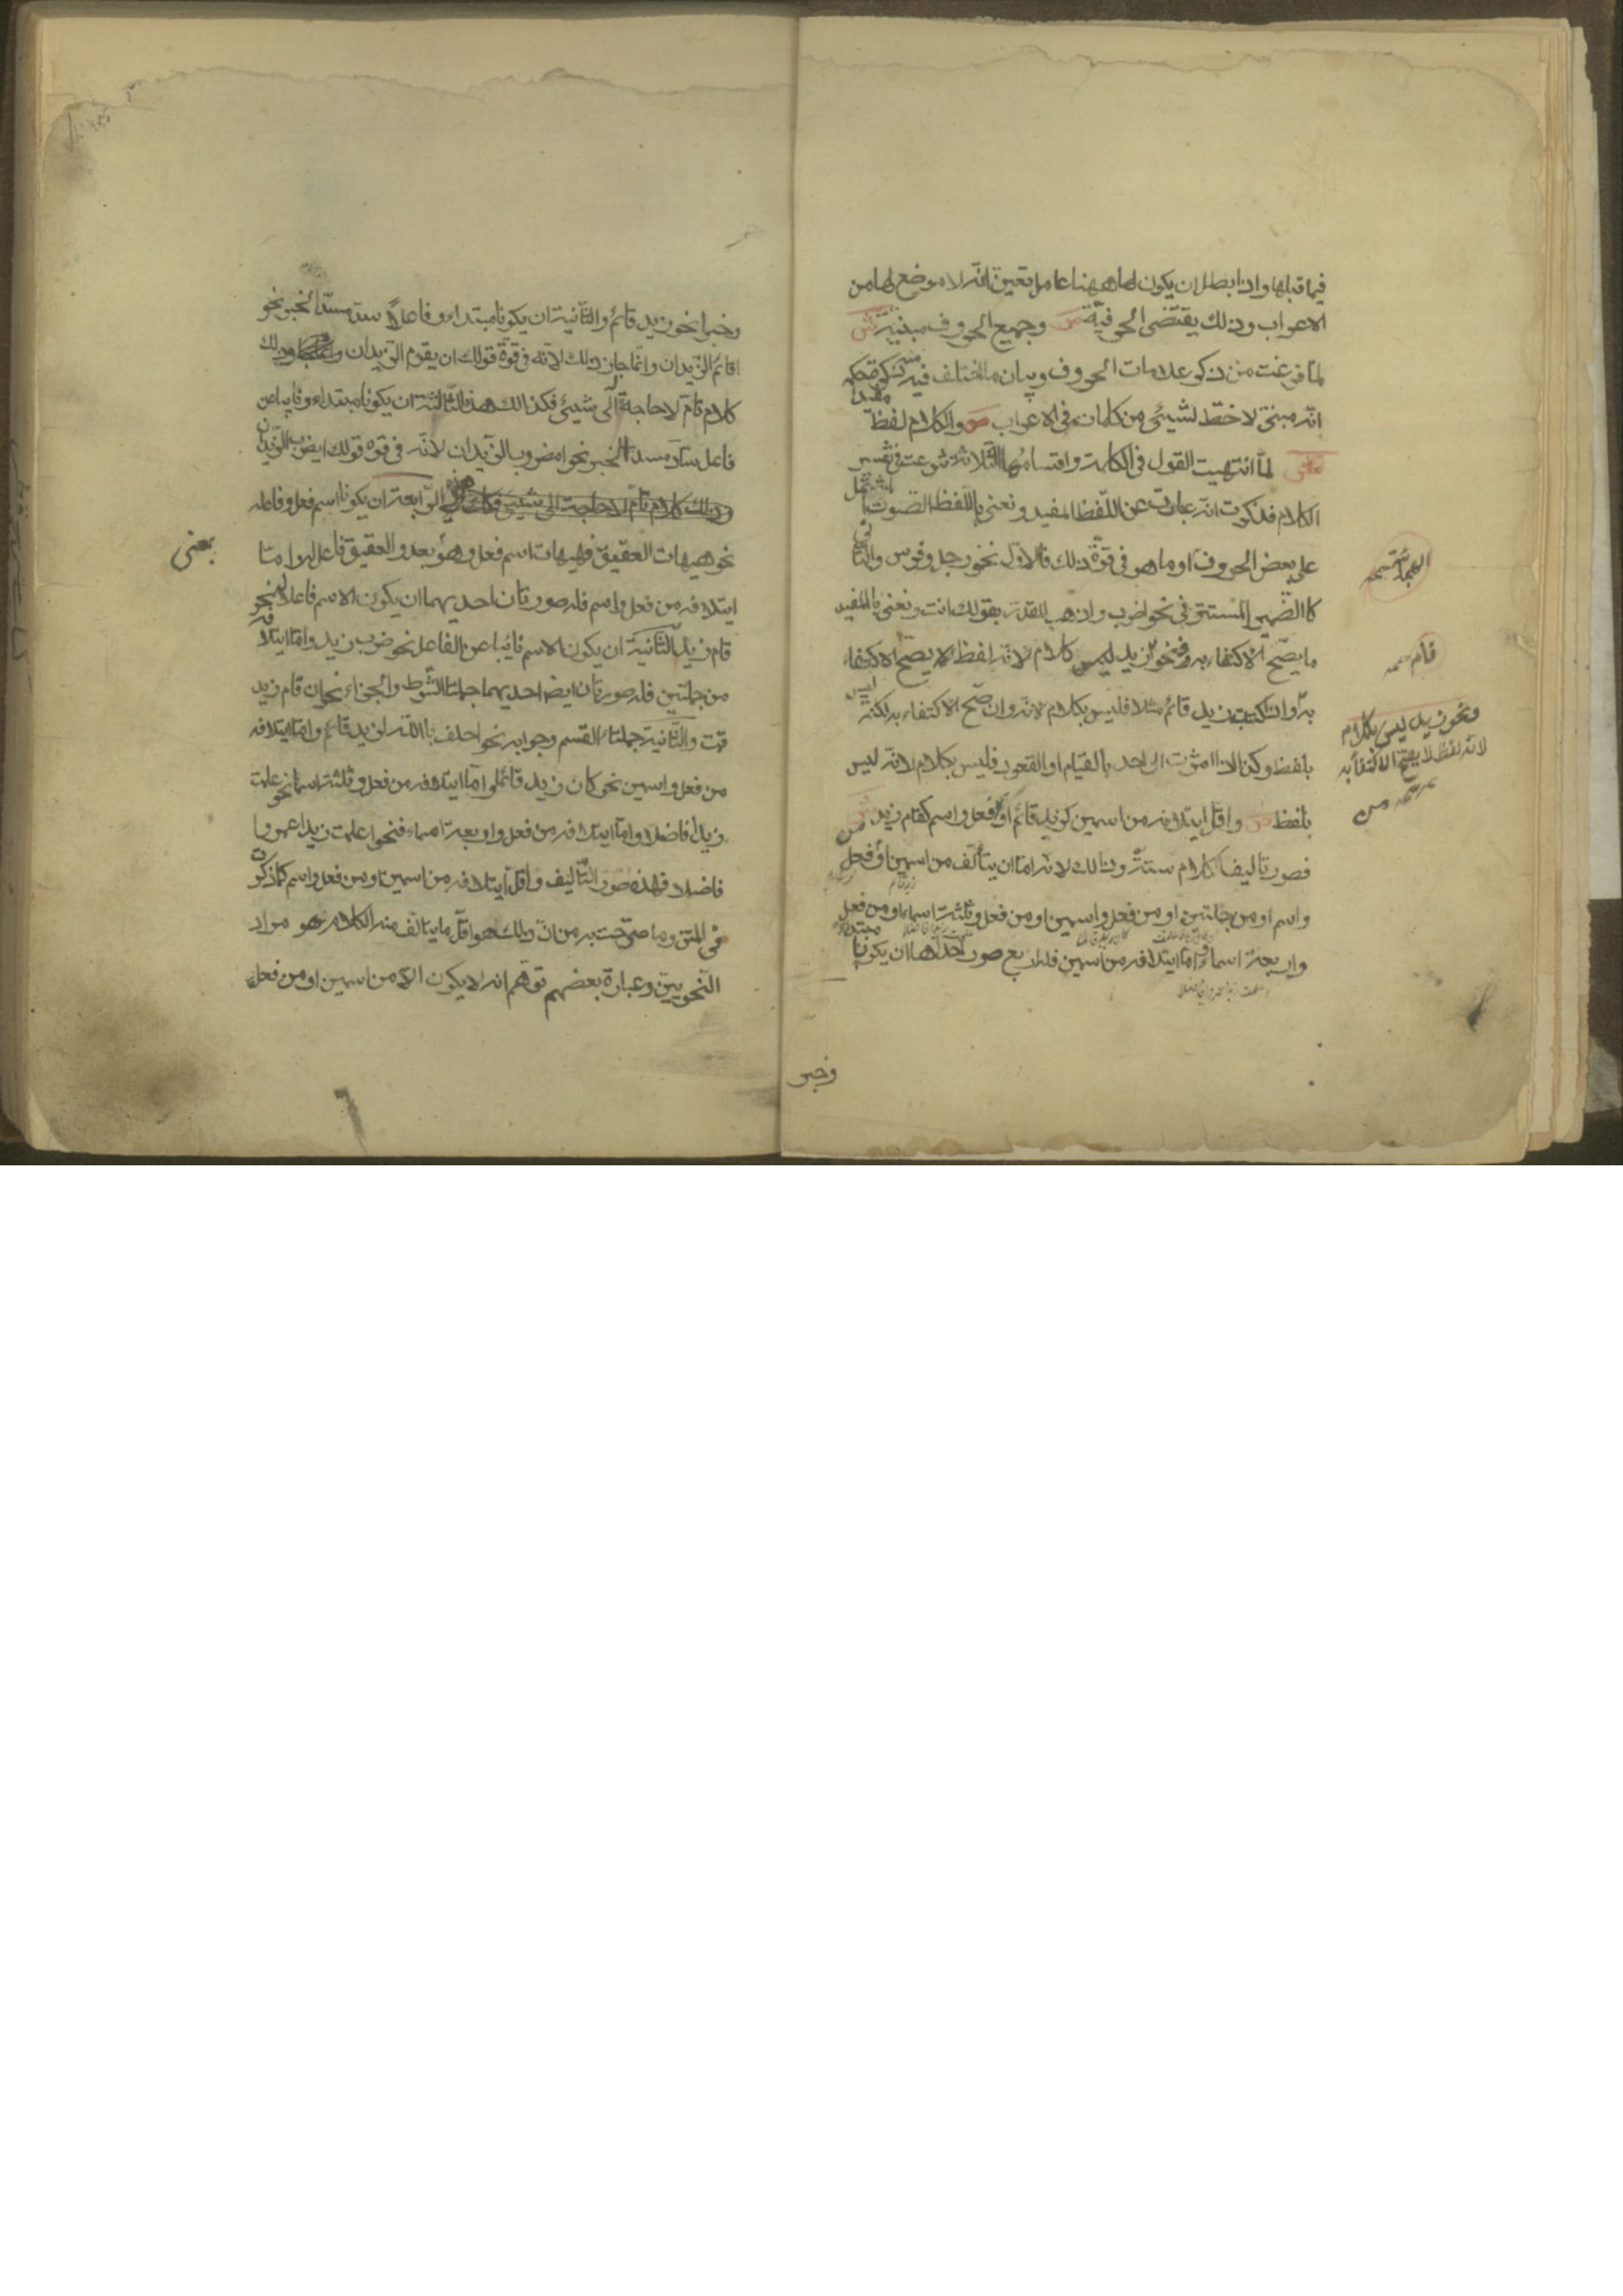 فيما قبلها واذا بطل ان يكون لها ههنا عامل تعين انه لا موضع لها من
الاعراب وذلك يقتضى الحرفية ص وجميع الحروف مبنية ش
لما فرغت من ذكر علامات الحروف وبيان ما اختلف فيه منه ذكرت حكمه
انه مبنى لا حظ لشيئ من كلماته فى الاعراب ص والكلام لفظ مفيد
ش لما انتهيت القول فى الكلمة واقسامها الثلاثة شرعت فى تفسير
الكلام فذكرت انه عبارة عن اللفظ المفيد ونعنى باللفظ الصوت المشتمل
على بعض الحروف او ما هو فى قوة ذلك فالاول نحو رجل وفرس والثانى
كالضمير المستتر فى نحو اضرب واذهب المقدر بقولك انت ونعنى بالمفيد
ما يصح الاكتفاء به فنحو زيد ليس كلام لانه لفظ لا يصح الاكتفاء
به واذا كتبت زيد قائم مثلا فليس بكلام لانه وان صح الاكتفاء به لكنه ليس
بلفظ وكذلك اذا اشرت الى احد بالقيام او القعود فليس بكلام لانه ليس
بلفظ ص واقل ايتلافه من اسمين كزيد قائم او فعل واسم كقام زيد ش
فصور تاليف الكلام ستة وذالك لانه اما ان يتألف من اسمين او من فعل
واسم او من جملتين او من فعل واسمين او من فعل وثلثة اسماء او من فعل
واربعة اسماء اما ايتلافه من اسمين فله اربع صور احداها ان يكونا مبتداء
وخبر
قام
ونحو زيد ليس بكلام
لانه لفظ لا يصح الاكتفا به
وخبرا نحو زيد قائم والثانية ان يكونا مبتداء وفاعلا سد مسد الخبر نحو
اقائم الزيدان وانما جاز ذلك لانه فى قوة قولك ان يقوم الزيدان وذلك
كلام تام لا حاجة الى شيئ فكذالك هذا الثالثة ان يكونا مبتداء ونايبا عن
فاعل سد مسد الخبر نحو امضروب الزيدان لانه فى قوة قولك ايضرب الزيدان
وذلك كلام تام لا حاجة الى شيئ فكذلك هذه الرابعة ان يكونا اسم فعل وفاعله
نحو هيهات العقيق فهيهات اسم فعل وهو بعد والعقيق فاعل له واما
بمعنى
ايتلافه من فعل واسم فله صورتان احديهما ان يكون الاسم فاعلا نحو
قام زيد الثانية ان يكون الاسم نايبا عن الفاعل نحو ضرب زيد واما ايتلافه
من جملتين فله صورتان ايضا احديهما جملتا الشرط والجزاء نحو ان قام زيد
قمت والثانية جملتا القسم وجوابه نحو احلف بالله لزيد قائم واما ايتلافه
من فعل واسمين نحو كان زيد قائما واما ايتلافه من فعل وثلثة اسما نحو علمت
زيدا فاضلا واما ايتلافه من فعل واربعة اسماء فنحو اعلمت زيدا عمروا
فاضلا فهذه صور التاليف واقل ايتلافه من اسمين او من فعل واسم كما ذكرت
فى المتن وما صرحت به من ان ذلك هو اقل ما يتالف منه الكلام هو مراد
النحويين وعبارة بعضهم توهم انه لا يكون الا من اسمين او من فعل